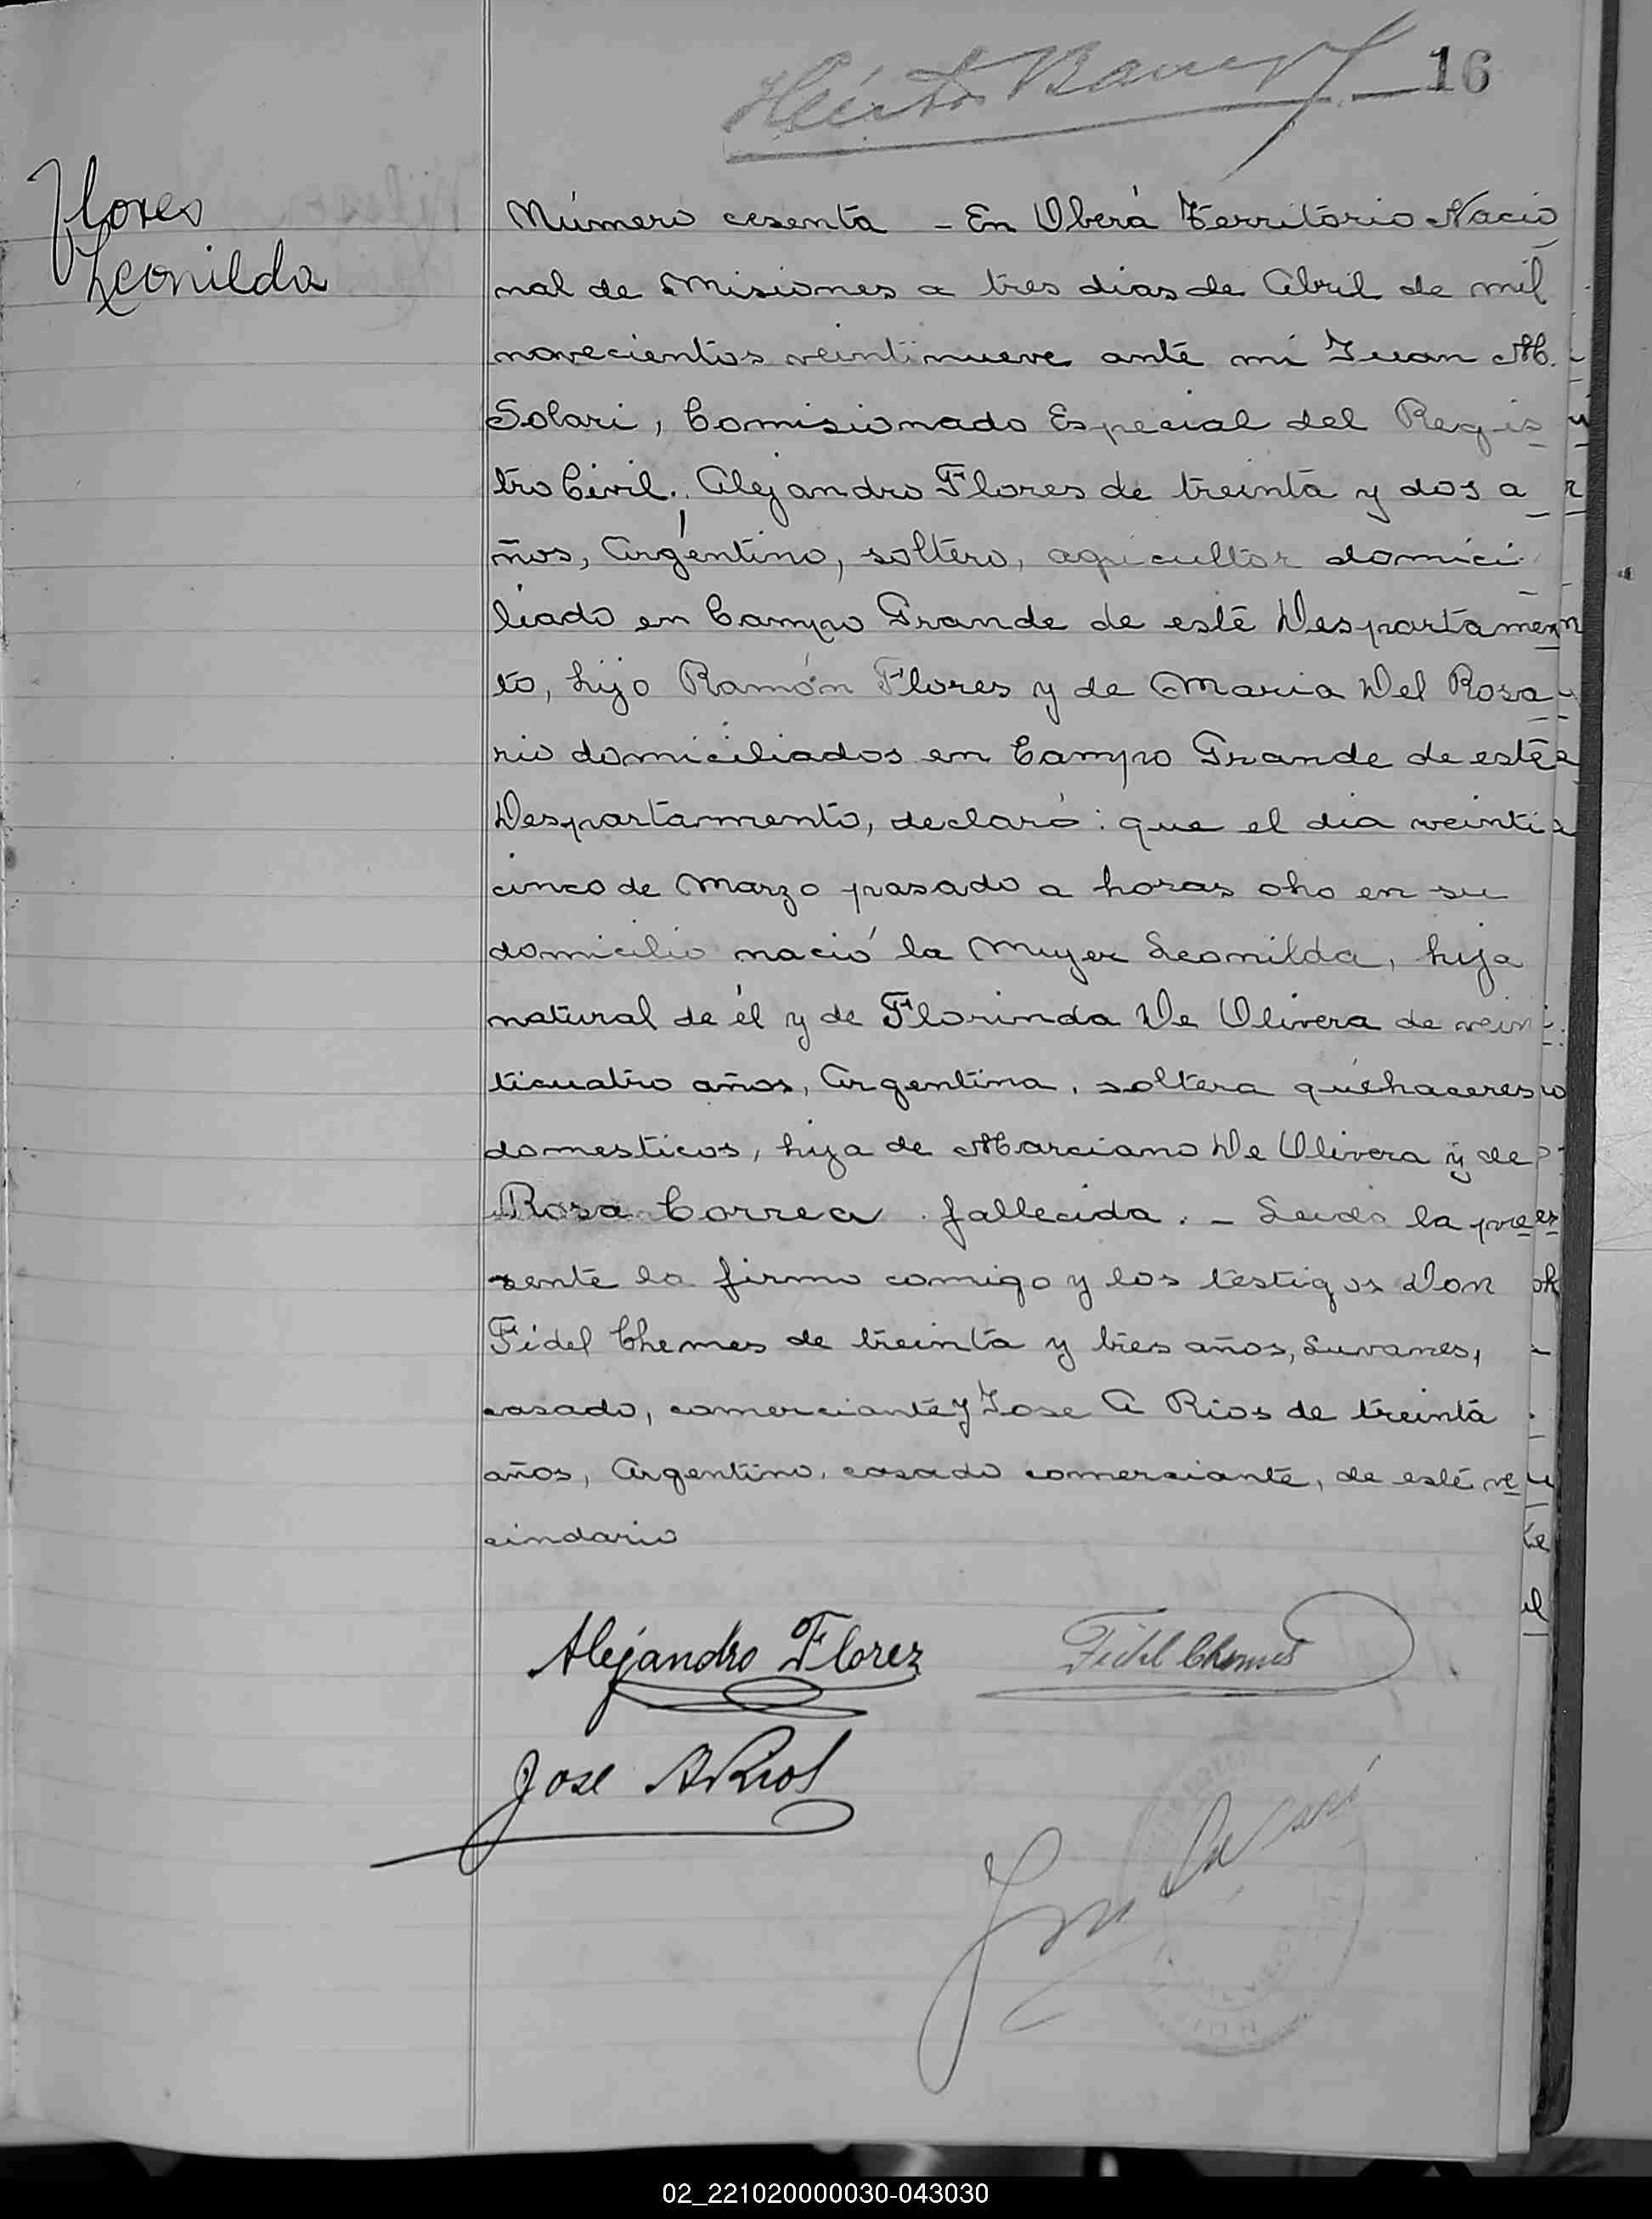 Héctor
16
Flores
Leonilda
Número cesenta - En Oberá Territorio Nacio
nal de Misiones a tres dias de Abril de mil
novecientos veintinueve ante mi Juan M.
Solari, Comisionado Especial del Regis
tro Civil, Alejandro Flores de treinta y dos a
ños, Argentino, soltero, agricultor domici
liado en Campo Grande de esté Despartamen
to, hijo Ramón Flores y de Maria Del Rosa
rio domiciliados en Campo Grande de esté
Despartamento, declaró: que el dia veinti
cinco de Marzo pasado a horas oho en su
domicilio nació la Mujer Leonilda, hija
natural de él y de Florinda De Olivera de vein
ticuatro años, Argentina, soltera quéhaceres
domesticos, hija de Marciano De Olivera y de
Rosa Correa fallecida. - Leida la pre
sente la firmo comigo y los testigos Don
Fidel Chemes de treinta y tres años, Luvanes,
casado, comerciante y Jose A Rios de treinta
años, Argentino, casado comersiante, de esté ve
cindario
Alejandro Florez
Fidel Chemes
Jose A Rios
02_221020000030-043030